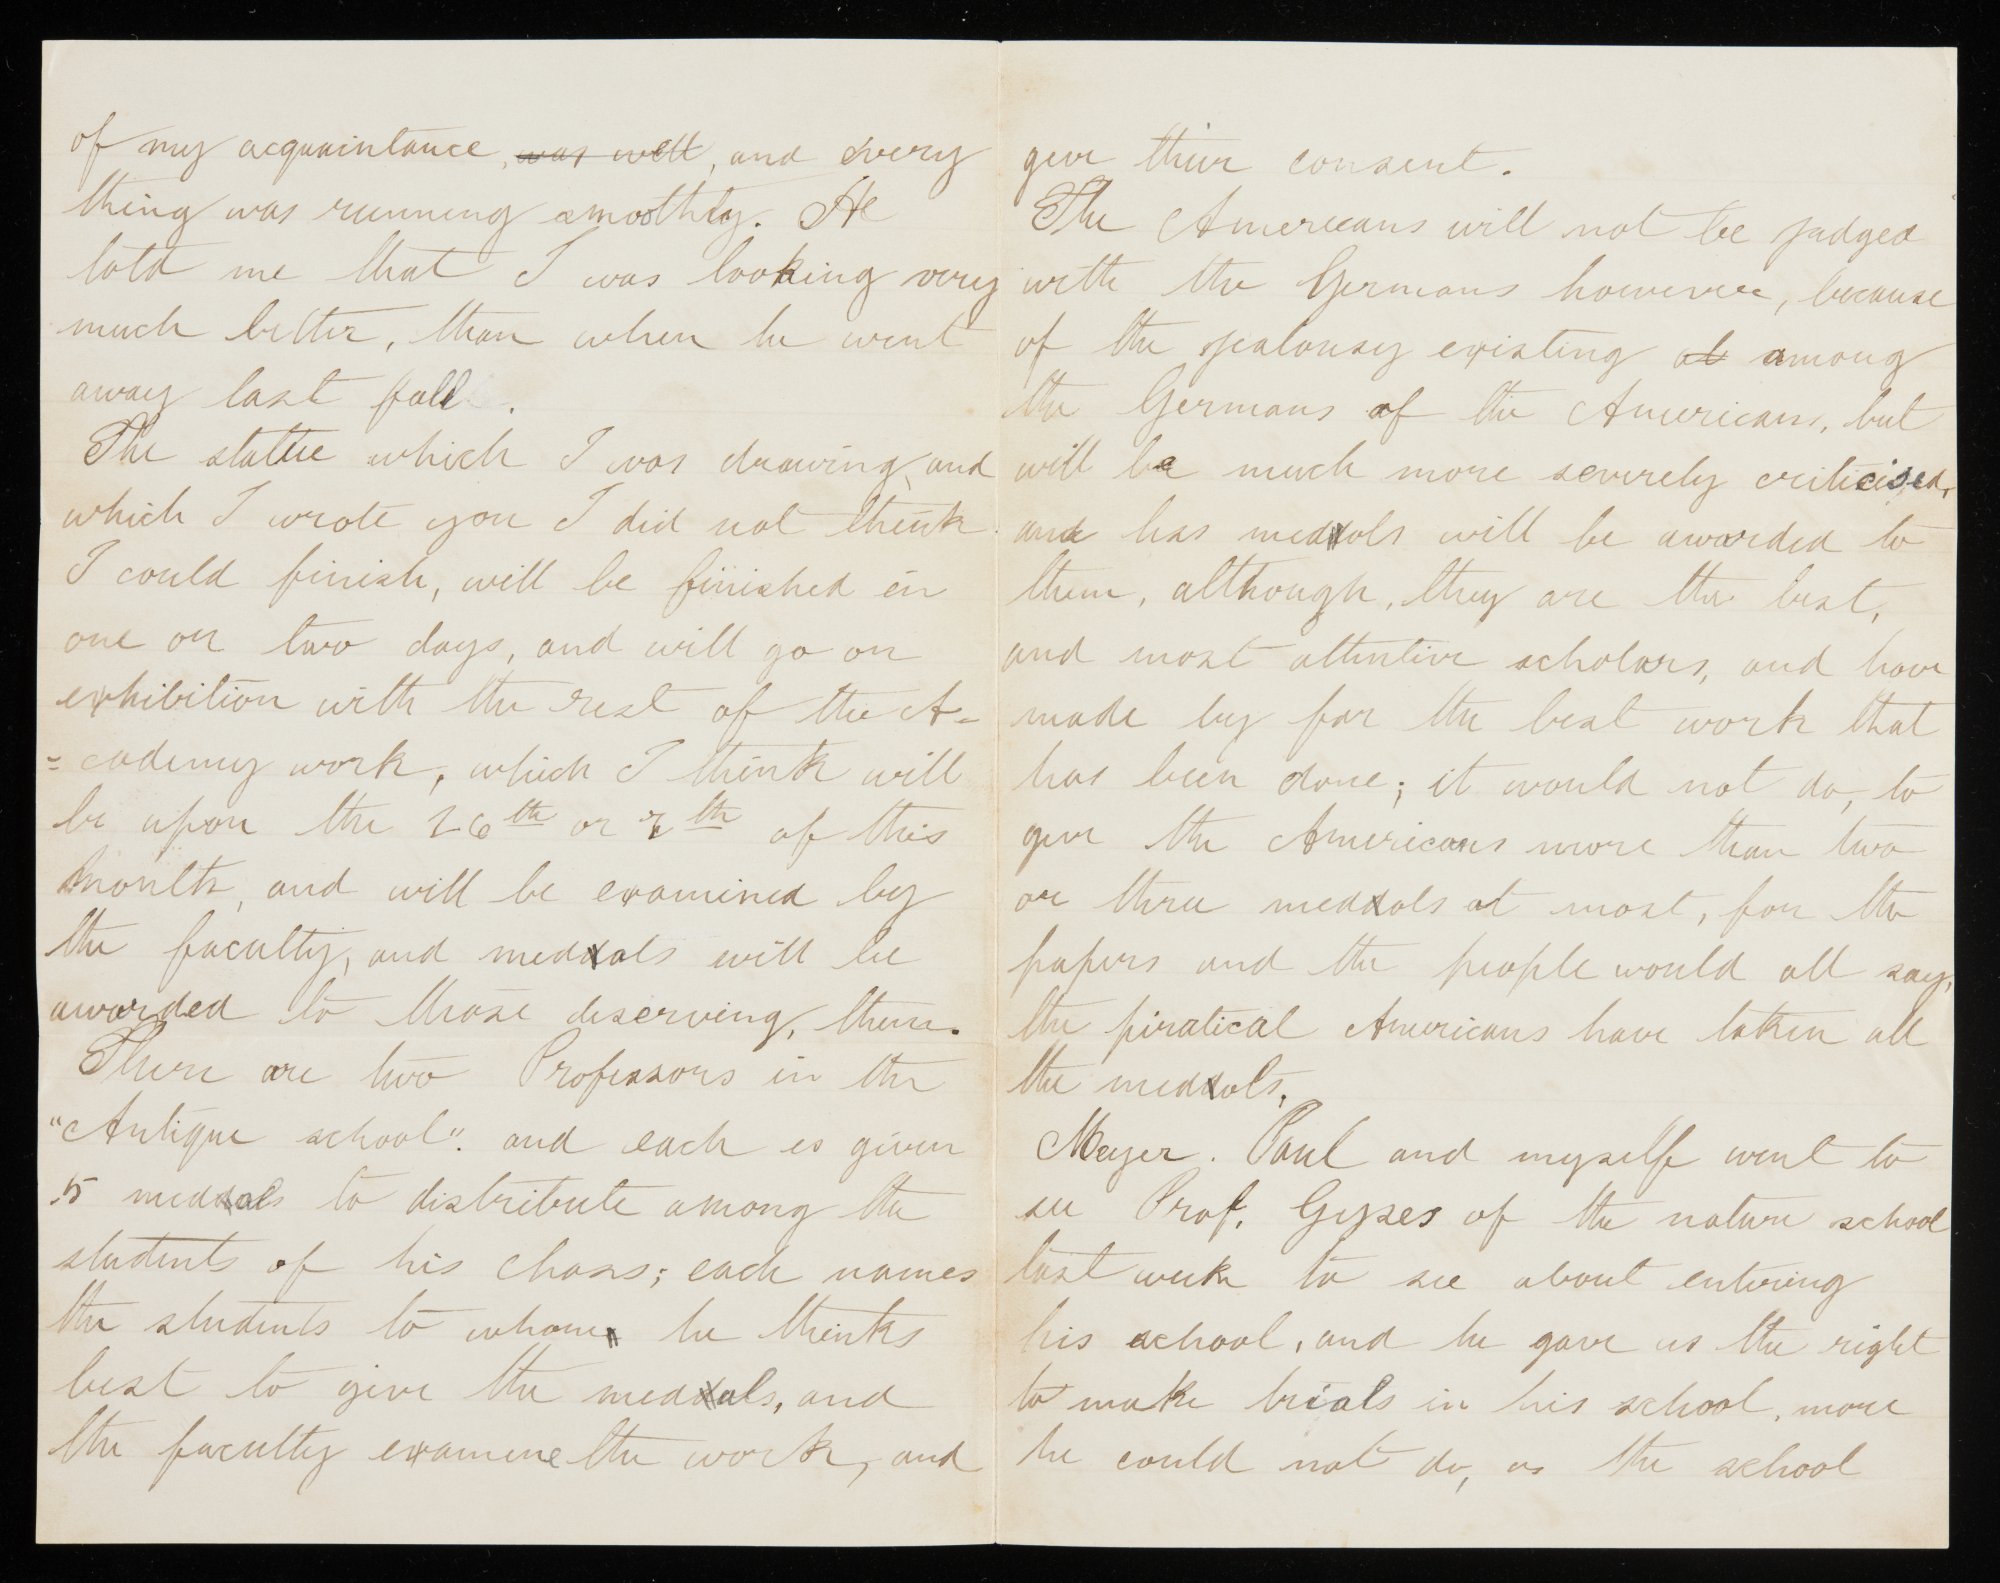 of my acquaintance, was well, and every
thing was running smoothly. He
told me that I was looking very
much better, than when he went
away last fall.
The statue which I was drawing, and
which I wrote you I did not think
I could finish, will be finished in
one or two days, and will go on
exhibition with the rest of the A-
=cademy work, which I think will
be upon the 26th or 7th of this
month, and will be examined by
the faculty, and medals will be
awarded to those deserving, them.
There are two Professors in the
"Antique school". and each is given
5 medals to distribute among the
students of his chass; each names
the students to whom he thinks
best to give the medals, and
the faculty examine the work, and
give their consent.
The Americans will not be judged
with the Germans however, because
of the jealousy existing at among
the Germans of the Americans, but
will be much more severely criticised,
and has medals will be awarded to
them, although, they are the best,
and most attentive scholars, and have
made by far the best work that
has been done; it would not do, to
give the Americans more than two
or three medals at most, for the
papers and the people would all say,
the piratical Americans have taken all
the medals.
Meyer. Paul and myself went to
see Prof. Gyses of the nature school
last week to see about entering
his school, and he gave us the right
to make trials in his school, more
he could not do, as the school